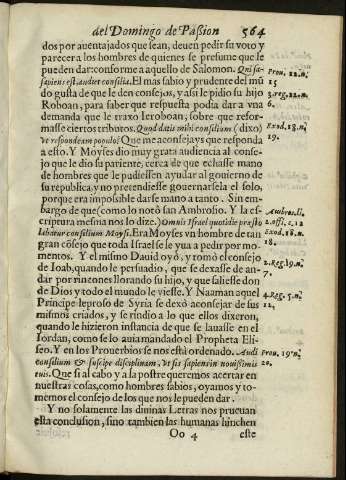 del Domingo de Paßion 564
dos por auentajados que sean, deuen pedir su voto y
parecer a los hombres de quienes se presume que le
pueden dar: conforme a aquello de Salomon. Qui sa-
piens est audiet consilia. El mas sabio y prudente del mũ
do gusta de que le den consejos, y assi le pidio su hijo
Roboan, para saber que respuesta podia dar a vna
demanda que le traxo Ieroboan, sobre que refor-
masse ciertos tributos. Quod datis mihi consilium (dixo)
vt respondeam populo? Que me aconsejays que responda
a esto. Y Moyses dio muy grata audiencia al conse-
jo que le dio su pariente, cerca de que echasse mano
de hombres que le pudiessen ayudar al gouierno de
su republica, y no pretendiesse gouernarsela el solo,
porque era impossible darse mano a tanto. Sin em-
bargo de que (como lo notò san Ambrosio. Y la es-
criptura mesma nos lo dize.) Omnis Israel quotidie præsto
labatur consilium Moysi. Era Moyses vn hombre de tan
gran cõsejo que toda Israel se le yua a pedir por mo-
mentos. Y el mismo Dauid oyó, y romò el consejo
de Ioab, quando le persuadio, que se dexasse de an-
dar por rincones llorando su hijo, y que saliesse don
de Dios y todo el mundo le viesse. Y Naaman aquel
Principe leproso de Syria se dexò aconsejar de sus
mismos criados, y se rindio a lo que ellos dixeron,
quando le hizieron instancia de que se lauasse en el
Iordan, como se lo auia mandado el Propheta Eli-
seo. Y en los Prouerbios se nos està ordenado. Audi
consilium & suscipe disciplinam, vt sis sapiens in nouissimis
tuis. Que si al cabo y a la postre queremos acertar en
nuestras cosas, como hombres sabios, oyamos y to-
memos el consejo de los que nos le pueden dar.
Y no solamente las diuinas Letras nos prueuan
esta conclusion, sino tambien las humanas hinchen
Oo 4 este
Prou. 12. n.
15
3. reg. 12. n.
6.
Exod. 18. n.
19.
Ambros. li.
2. offic. c. 12
Exod. 18. n.
18.
2. Reg. 19. n.
7.
4. Reg. 5. n.
12.
Prou. 19. n.
20.